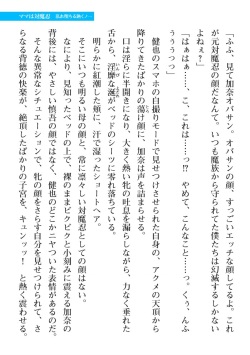 ママは対魔忍 淫水堕ちる熟くノ一
「ふふ、見て加奈オバサン。オバサンの顔、すっごいエッチな顔してるよ。これ
が元対魔忍の顔だなんて。いつも魔族から守られてた僕たちは幻滅するしかない
よねぇ？」
「はぁはぁ……こ、これは……っ!?　やめて、こんなこと……っ。くぅ、んふぅ
ぅぅうっっ」
健也のスマホの自撮りモードで見せつけられた自身の、アクメの天頂から
降りてきたばかりの蕩け顔に、加奈は声を詰まらせる。
口は淫らに半開きになり、大きく熱い牝の吐息を漏らしながら、力なく垂れた
舌から、淫靡な涎がベッドのシーツに零れ落ちている。
明らかに紅潮した頬に、汗で湿ったショートヘア。
そこにいつも明るい母の顔と、常に凛々しい対魔忍としての顔はない。
なにより、見知ったベッドの上で、裸のままビクビクと小刻みに震える加奈の
背後には、やさしい悠吾の顔ではなく、健也の生意気づいた表情があるのだ。
そんな異常なシチュエーションで、牝の顔をさらす自分を見せつけられて、さ
らなる背徳の快楽が、絶頂したばかりの子宮を、キュンッッ！と熱く震わせる。